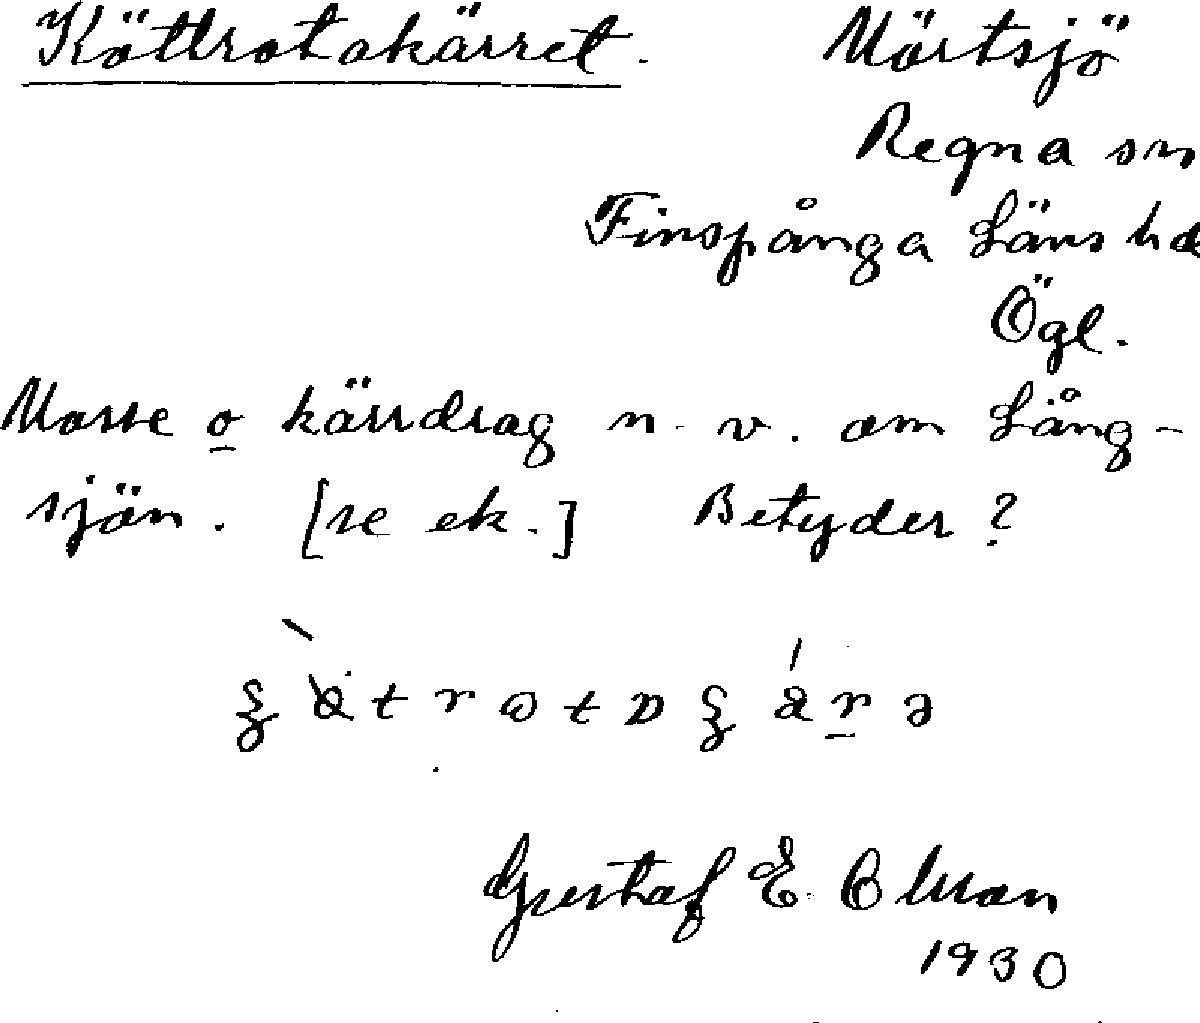 Köttrotakärret. Mörtsjö
Regna sn
Finspånga Läns hd
Ögl.
Mosse o kärrdrag n. v. om Lång-
sjön. [se ek.] Betyder?
Gustaf E. Olsson
1930